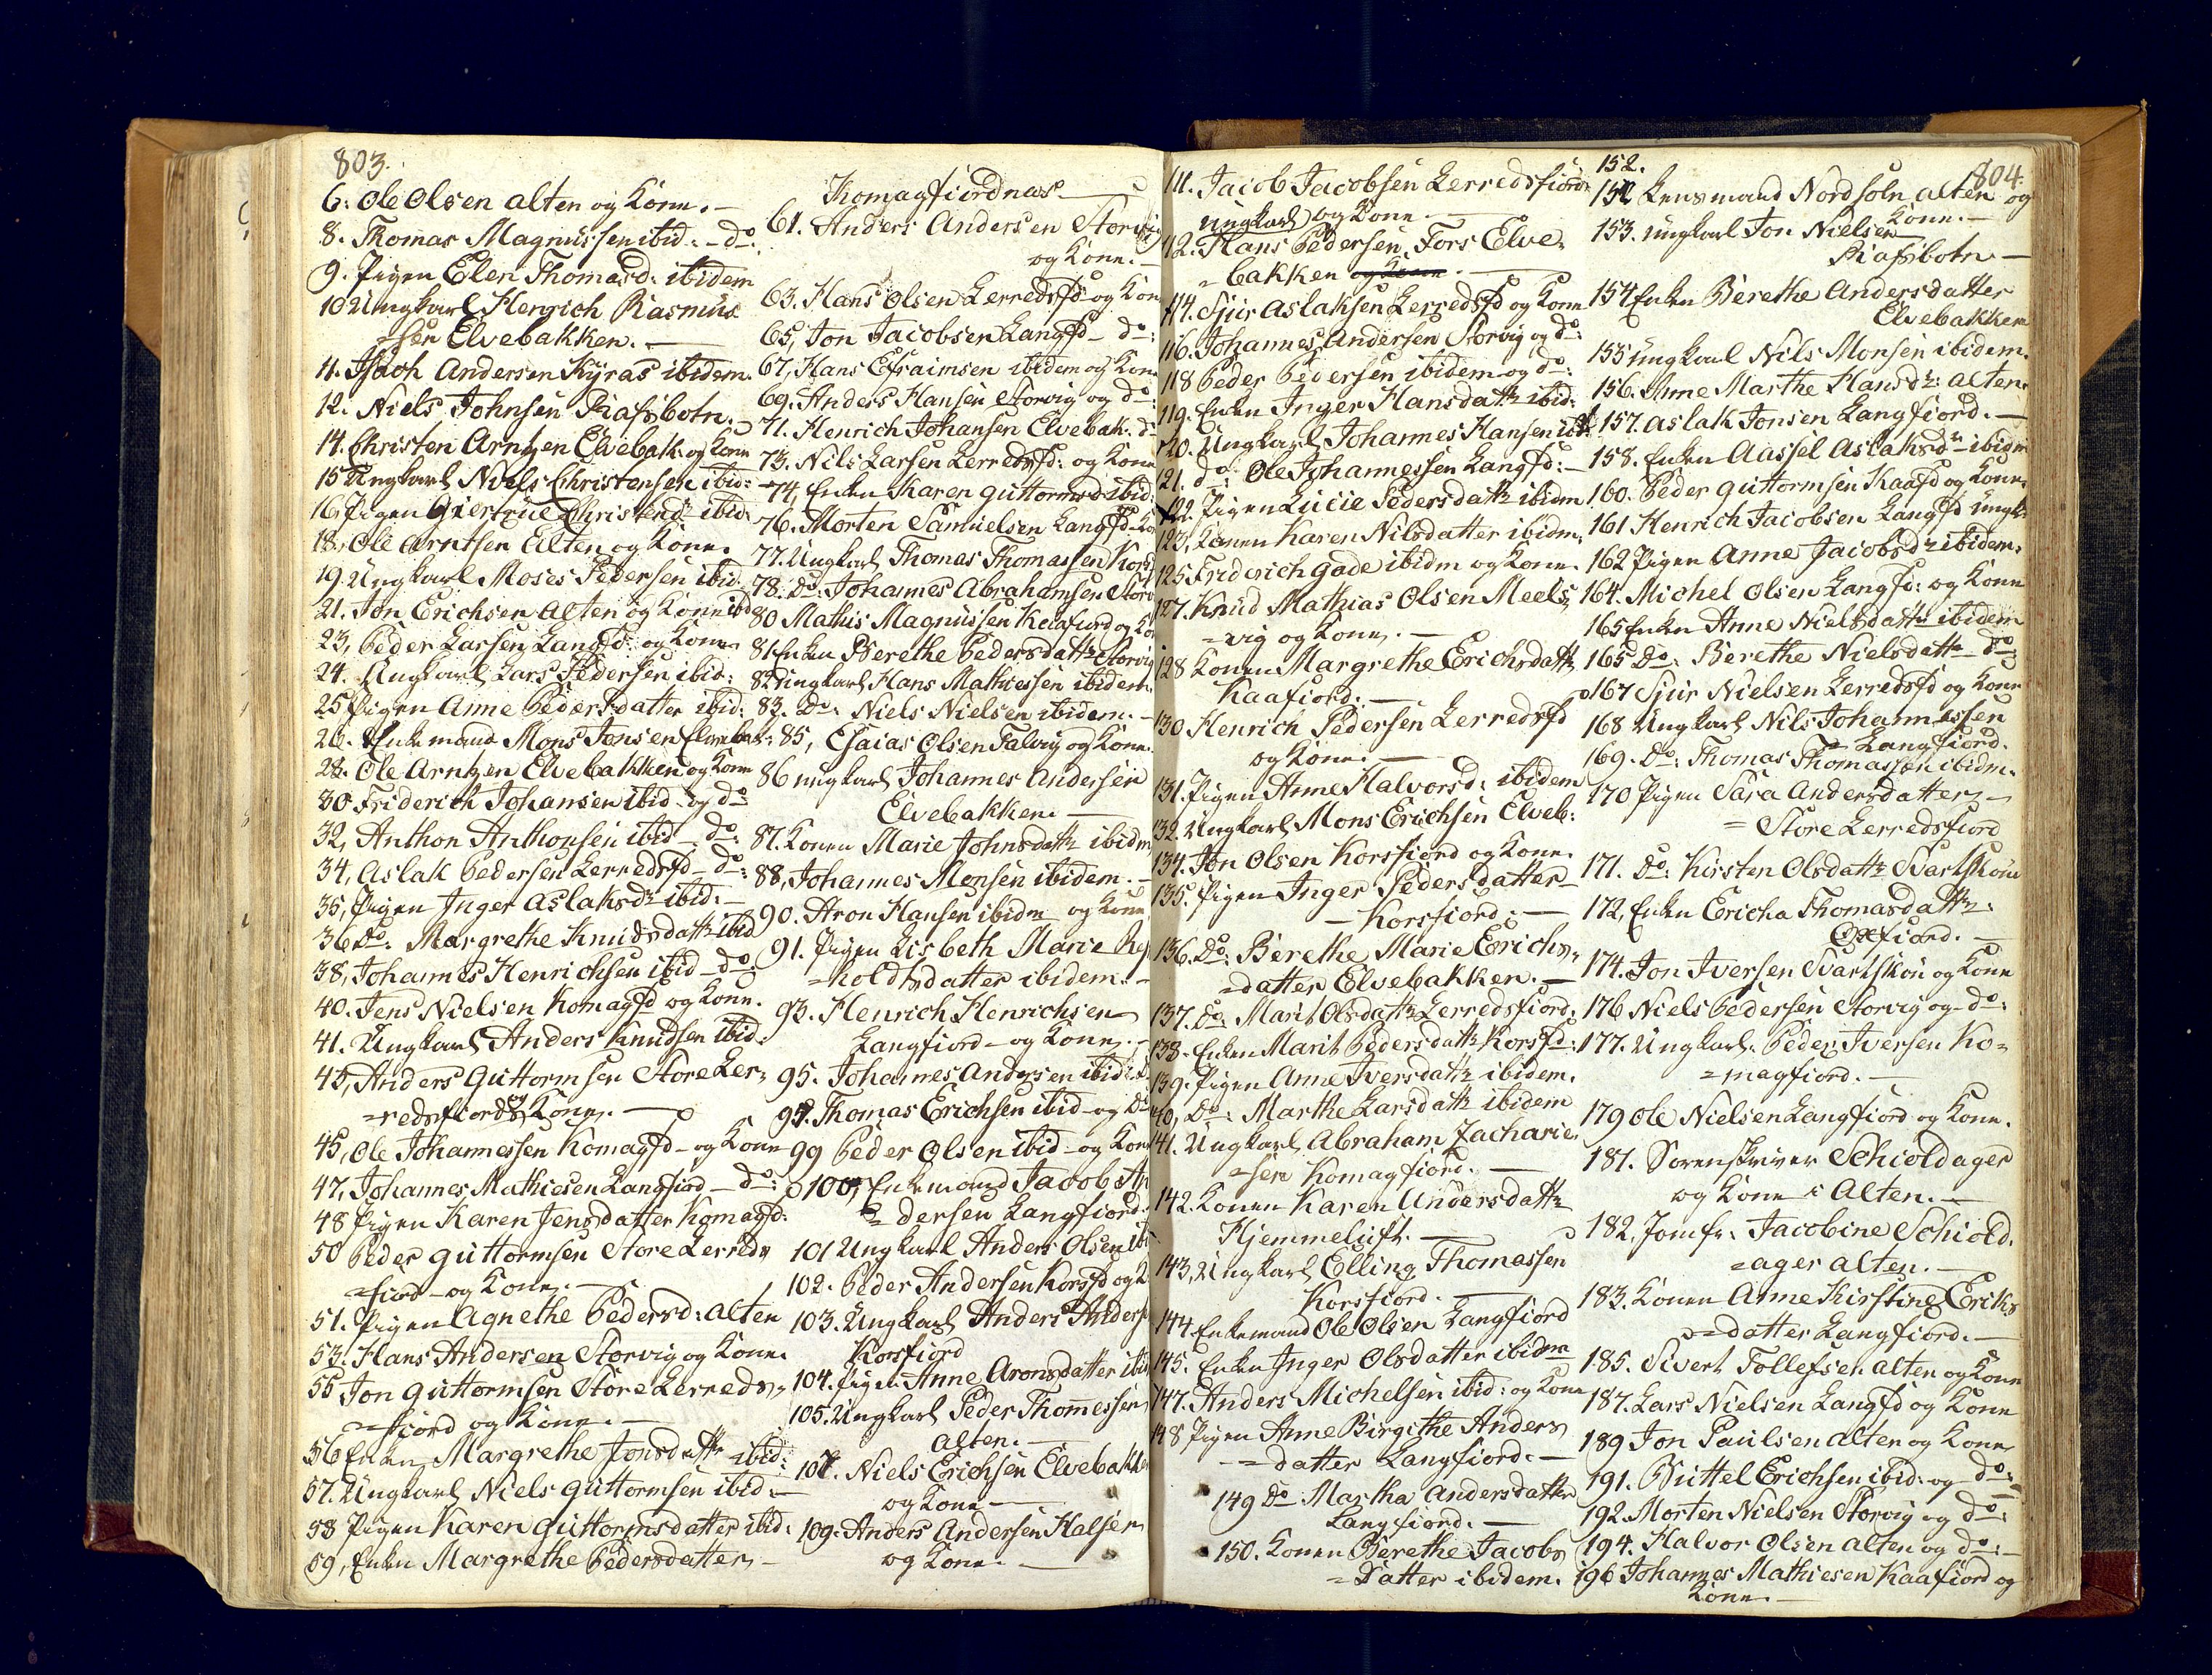 803.
6. Ole Olsen Alten og Kone. —
8. Thomas Magnussen ibid: – do:
9. Pigen Elen Thomasd: ibidem
10 Ungkarl Henrich Rasmus
=sen Elvebakken. —
11. Isach Andersen Kyras ibidem.
12. Niels Johnsen Rafsbotn.
14. Christen Arntzen Elvebak: og Kone
15 Ungkarl Niels Christensen ibid: –
16, Pigen Giertrue Christendr ibid:
18, Ole Arntsen Alten og Kone.
19. Ungkarl Moses Pedersen ibid.
21. Jon Erichsen Alten og Kone ibd
23, Peder Larsen Langfd: og Kone
24. Ungkarl Lars Pedersen ibid:
25 Pigen Anne Pedersdatter ibid:
26. Enkemand Mons Jonsen Elvebak:
28. Ole Arntzen Elvebakken og Kone
30 Friderich Johansen ibid: og do
32, Anthon Anthonsen ibid – do:
34, Aslak Pedersen Lerredsfd – do:
35, Pigen Inger Aslaksdr ibid: –
36 Do: Margrethe Knudsdattr ibid
38, Johannes Henrichsen ibid – do:
40. Jens Nielsen Komagfd og Kone.
41. Ungkarl Anders Knudsen ibid:
43, Anders Guttormsen Store Ler=
=redsfiord og Kone. —
45, Ole Johannessen Komagfd – og Kone
47, Johannes Mathiesen Langfiord – do:
48 Pigen Karen Jensdatter Komagfd:
50 Peder Guttormsen Store Lerreds
=fiord – og Kone. —
51. Pigen Agnethe Pedersd: Alten
53. Hans Andersen Storvig og Kone.
55 Jon Guttormsen Store Lerreds=
=fiord og Kone. —
56 Enken Margrethe Jonsdattr ibid:
57. Ungkarl Niels Guttormsen ibid: –
58 Pigen Karen Guttormsdatter ibid:
59, Enken Margrethe Pedersdatter –
Komagfiordnæs —
61. Anders Andersen Storvig
og Kone. —
63. Hans Olsen Lerredsfd og Kone
65, Jon Jacobsen Langfd – do:
67, Hans Efraimsen ibidem og Kone
69. Anders Hansen Storvig og do:
71. Henrich Johansen Elvebak: do
73. Nils Larsen Lerredsfd: og Kone
74, Enken Karen Guttormsd: ibid:
76. Morten Samuelsen Langfd – Kone
77. Ungkarl Thomas Thomassen Korsf
78. Do: Johannes Abrahamsen Storv
80 Mathis Magnussen Kaafiord og Ko
81 Enken Berethe Pedersdattr Storvig
82 Ungkarl Hans Mathiessen ibidem.
83. Do: Niels Nielsen ibidem. –
85, Esaias Olsen Talvig og Kone.
86 Ungkarl Johannes Andersen
Elvebakken. —
87. Konen Marie Johnsdattr ibidm
88, Johannes Monsen ibidem. –
90. Aron Hansen ibidm og Kone
91. Pigen Lisbeth Marie Re
=holdtsdatter ibidem. –
93. Henrich Henrichsen
Langfiord – og Kone. –
95. Johannes Andersen ibid:
97. Thomas Erichsen ibid – og Do
99 Peder Olsen ibid – og Kone
100, Enkemand Jacob An
=dersen Langfiord.
101 Ungkarl Anders Olsen ibi
102. Peder Andersen Korsfd og K
103. Ungkarl Anders Anders
Korsfiord
104. Pigen Anne Aronsdatter ibid
105. Ungkarl Peder Thomessen
Alten. —
107. Niels Erichsen Elvebakken
og Kone —
109. Anders Andersen Halsen
og Kone. —
111. Jacob Jacobsen Lerredsfiord
ungkarl og Kone. —
112. Hans Pedersen Fors Elve=
=bakken og Kone. —
114. Sjur Aslaksen Lerredsfd og Kone
116. Johannes Andersen Storvig og do:
118 Peder Pedersen ibidem og do:
119. Enken Inger Hansdattr ibid:
120. Ungkarl Johannes Hansen ibd:
121. do: Ole Johannessen Langfd: –
122. Pigen Lucie Pedersdattr ibidm
123, Konen Karen Nilsdatter ibidm.
125 Friderich Gade ibidm og Kone.
127. Knud Mathias Olsen Meels=
=vig og Kone. —
128 Konen Margrethe Erichsdattr
Kaafiord. —
130 Henrich Pedersen Lerredsfd
og Kone. —
131. Pigen Anne Halvorsd: ibidem
132. Ungkarl Mons Erichsen Elveb:
134. Jon Olsen Korsfiord og Kone.
135. Pigen Inger Pedersdatter –
– Korsfiord. —
136. Do: Berethe Marie Erichs=
=datter Elvebakken. —
137. Do: Marit Olsdattr Lerredsfiord.
138. Enken Marit Pedersdattr Korsfd:
139. Pigen Anne Iversdattr ibidem.
140, Do: Marthe Larsdattr ibidem
141. Ungkarl Abraham Zacharie=
=sen Komagfiord. —
142. Konen Karen Andersdattr
Hjemmeluft. —
143, Ungkarl Elling Thomassen
Korsfiord. —
144. Enkemand Ole Olsen Langfiord
145. Enken Inger Olsdatter ibidm
147. Anders Michelsen ibid: og Kone
148 Pigen Anne Birgithe Anders
=datter Langfiord. —
149 Do: Martha Andersdatter
Langfiord. —
150. Konen Berethe Jacobs
=Datter ibidem.
152.
804.
152 Lensmand Nordsoln Alten og
Kone. —
153. Ungkarl Jon Nielsen
Rafsbotn —
154 Enken Berethe Andersdatter
Elvebakken
155 Ungkarl Nils Monsen ibidem.
156. Anne Marthe Hansdr: Alten.
157. Aslak Jonsen Langfiord. —
158. Enken Aassel Aslaksdr – ibidm
160. Peder Guttormsen Kaafd og Kone.
161 Henrich Jacobsen Langfd Ungk:
162 Pigen Anne Jacobsdr ibidem.
164. Michel Olsen Langfd: og Kone
165 Enken Anne Nielsdattr ibidem
165 Do: Berethe Nielsdattr – Do:
167 Sjur Nielsen Lerredsfd og Kone
168 Ungkarl Nils Johannessen
Langfiord.
169. Do: Thomas Thomassen ibidm.
170 Pigen Sara Andersdatter –
= Store Lerredsfiord
171. Do: Kirsten Olsdattr Svartskou
172, Enken Ericha Thomasdattr:
Oxfiord. —
174. Jon Iversen Svartskou og Kone
176 Niels Pedersen Storvig og – do:
177. Ungkarl. Peder Iversen Ko=
=magfiord. —
179 Ole Nielsen Langfiord og Kone.
181. Sorenskriver Schioldager
og Kone i Alten. —
182, Jomfr: Jacobine Schiold.
=ager Alten. —
183. Konen Anne Kirstine Eriks
=datter Langfiord. —
185. Sivert Tollefsen Alten og Kone
187. Lars Nielsen Langfd og Kone
189 Jon Paulsen Alten og Kone
191. Buttel Erichsen ibid: og do:
192. Morten Nielsen Storvig og do:
194. Halvor Olsen Alten og do: –
196 Johannes Mathiesen Kaafiord og
Kone. —